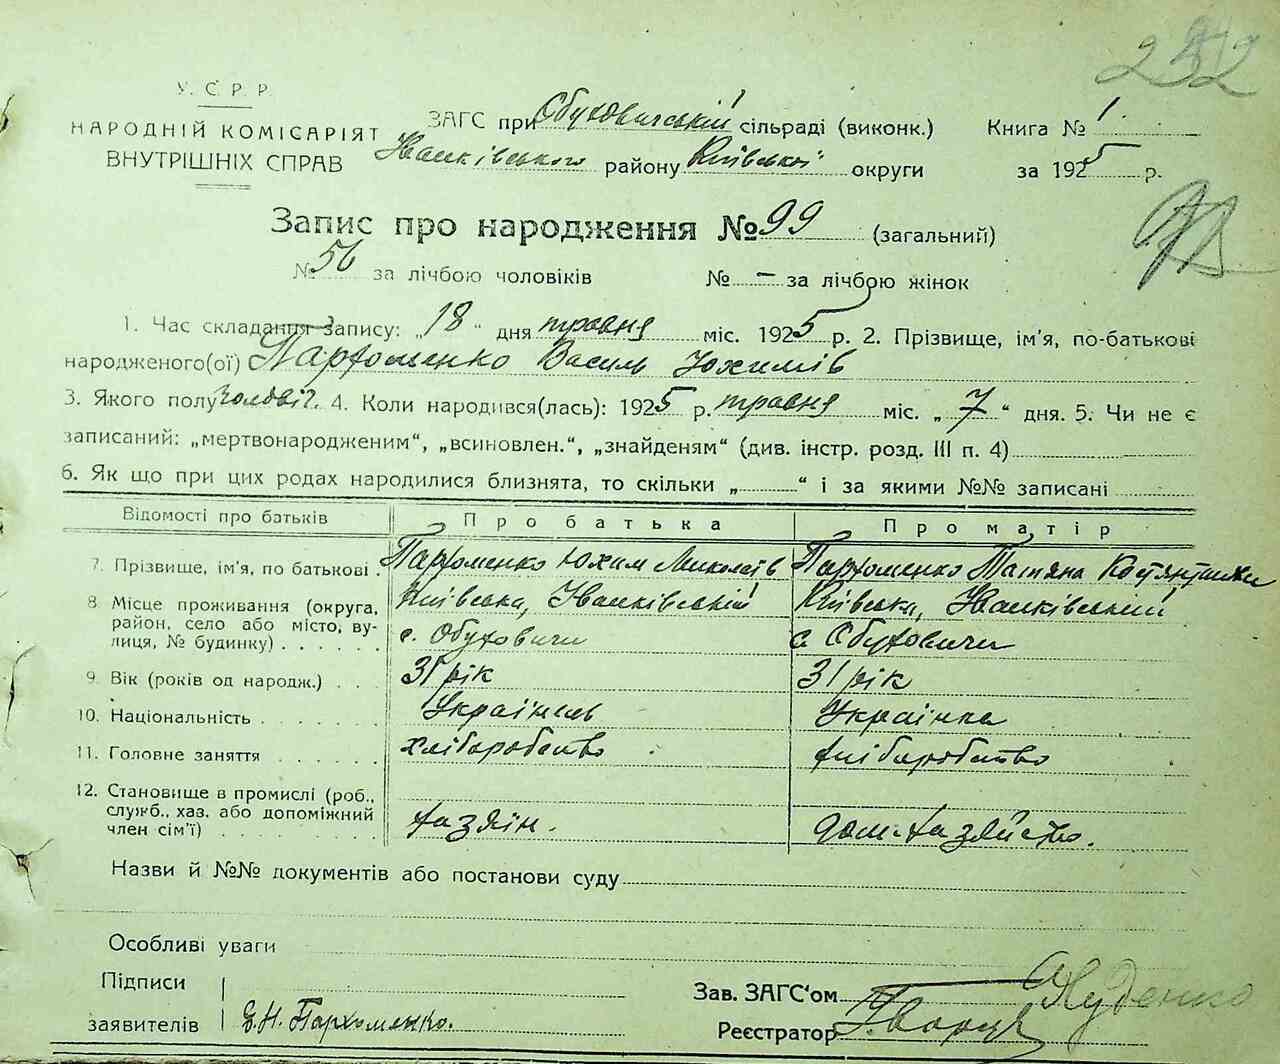 252
У. С. Р. Р.
НАРОДНІЙ КОМІСАРІЯТ
ВНУТРІШНІХ СПРАВ
ЗАГС при Обуховичській сільраді (виконк.) Книга № 1
Іванківського району Київської округи за 1925 р.
Запис про народження № 99 (загальний)
№ 56 за лічбою чоловіків № – за лічбою жінок
1. Час складання запису: „18“ дня травня міс. 1925 р. 2. Прізвище, ім'я, по-батькові
народженого(ої) Пархоменко Василь Юхимів
3. Якого полу чоловіч. 4. Коли народився(лась): 1925 р. травня міс. „7“ дня. 5. Чи не є
записаний: „мертвонародженим“, „всиновлен.“, „знайденям“ (див. інстр. розд. III п. 4)
6. Як що при цих родах народилися близнята, то скільки „ “ і за якими №№ записані
Відомості про батьків Про батька Про матір
7. Прізвище, ім'я, по батькові . Пархоменко Юхим Миколаїв Пархоменко Татяна
8 Місце проживання (округа, район, село або місто, вулиця, № будинку) . . . . . .
Київська, Іванківській Київська, Іванківський
с. Обуховичи с. Обуховичи
9. Вік (років од народж.) . . . 31 рік 31 рік
10. Національність . . . . . . . Українець Українка
11. Головне заняття . . . . . . хліборобство хліборобство
12. Становище в промислі (роб., служб., хаз. або допоміжний член сім'ї) . . . . . . . . .
хазяін. дом. хазяйство.
Назви й №№ документів або постанови суду
Особливі уваги
Підписи
заявителів Е. Н. Пархоменко.
Зав. ЗАГС'ом
Реєстратор